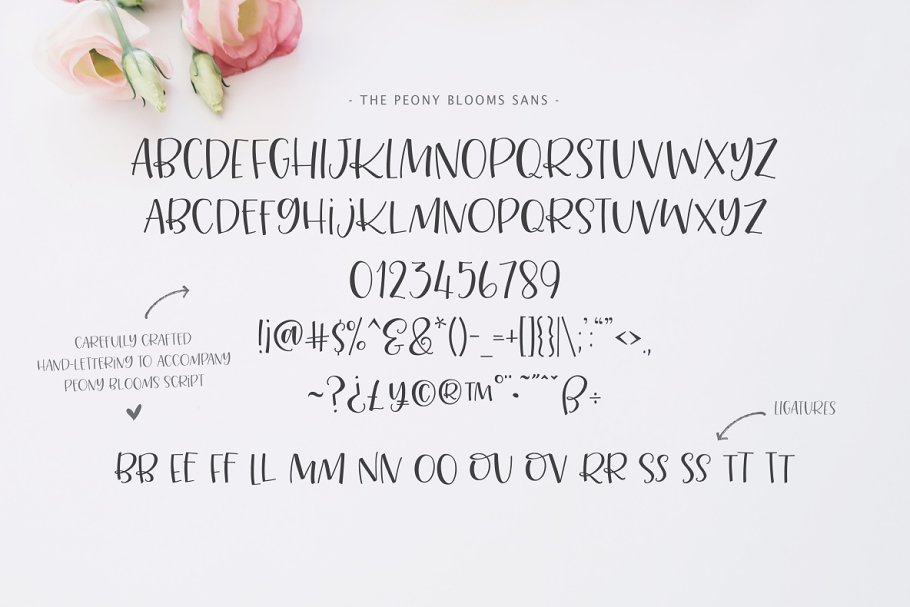 - THE PEONY BLOOMS SANS -
ABCDEFGHIJKLMNOPQRSTUVWXYZ
ABCDEFgHijKLMNOPQRSTUVWXYZ
0123456789
!¡@#$%^&&*()-_=+[]{}|\;':“”<>.,
~?¿£¥©®™°¨·˜”ˆˇß÷
CAREFULLY CRAFTED
HAND-LETTERING TO ACCOMPANY
PEONY BLOOMS SCRIPT
LIGATURES
BB EE FF LL MM NN OO OU OV RR SS SS TT TT